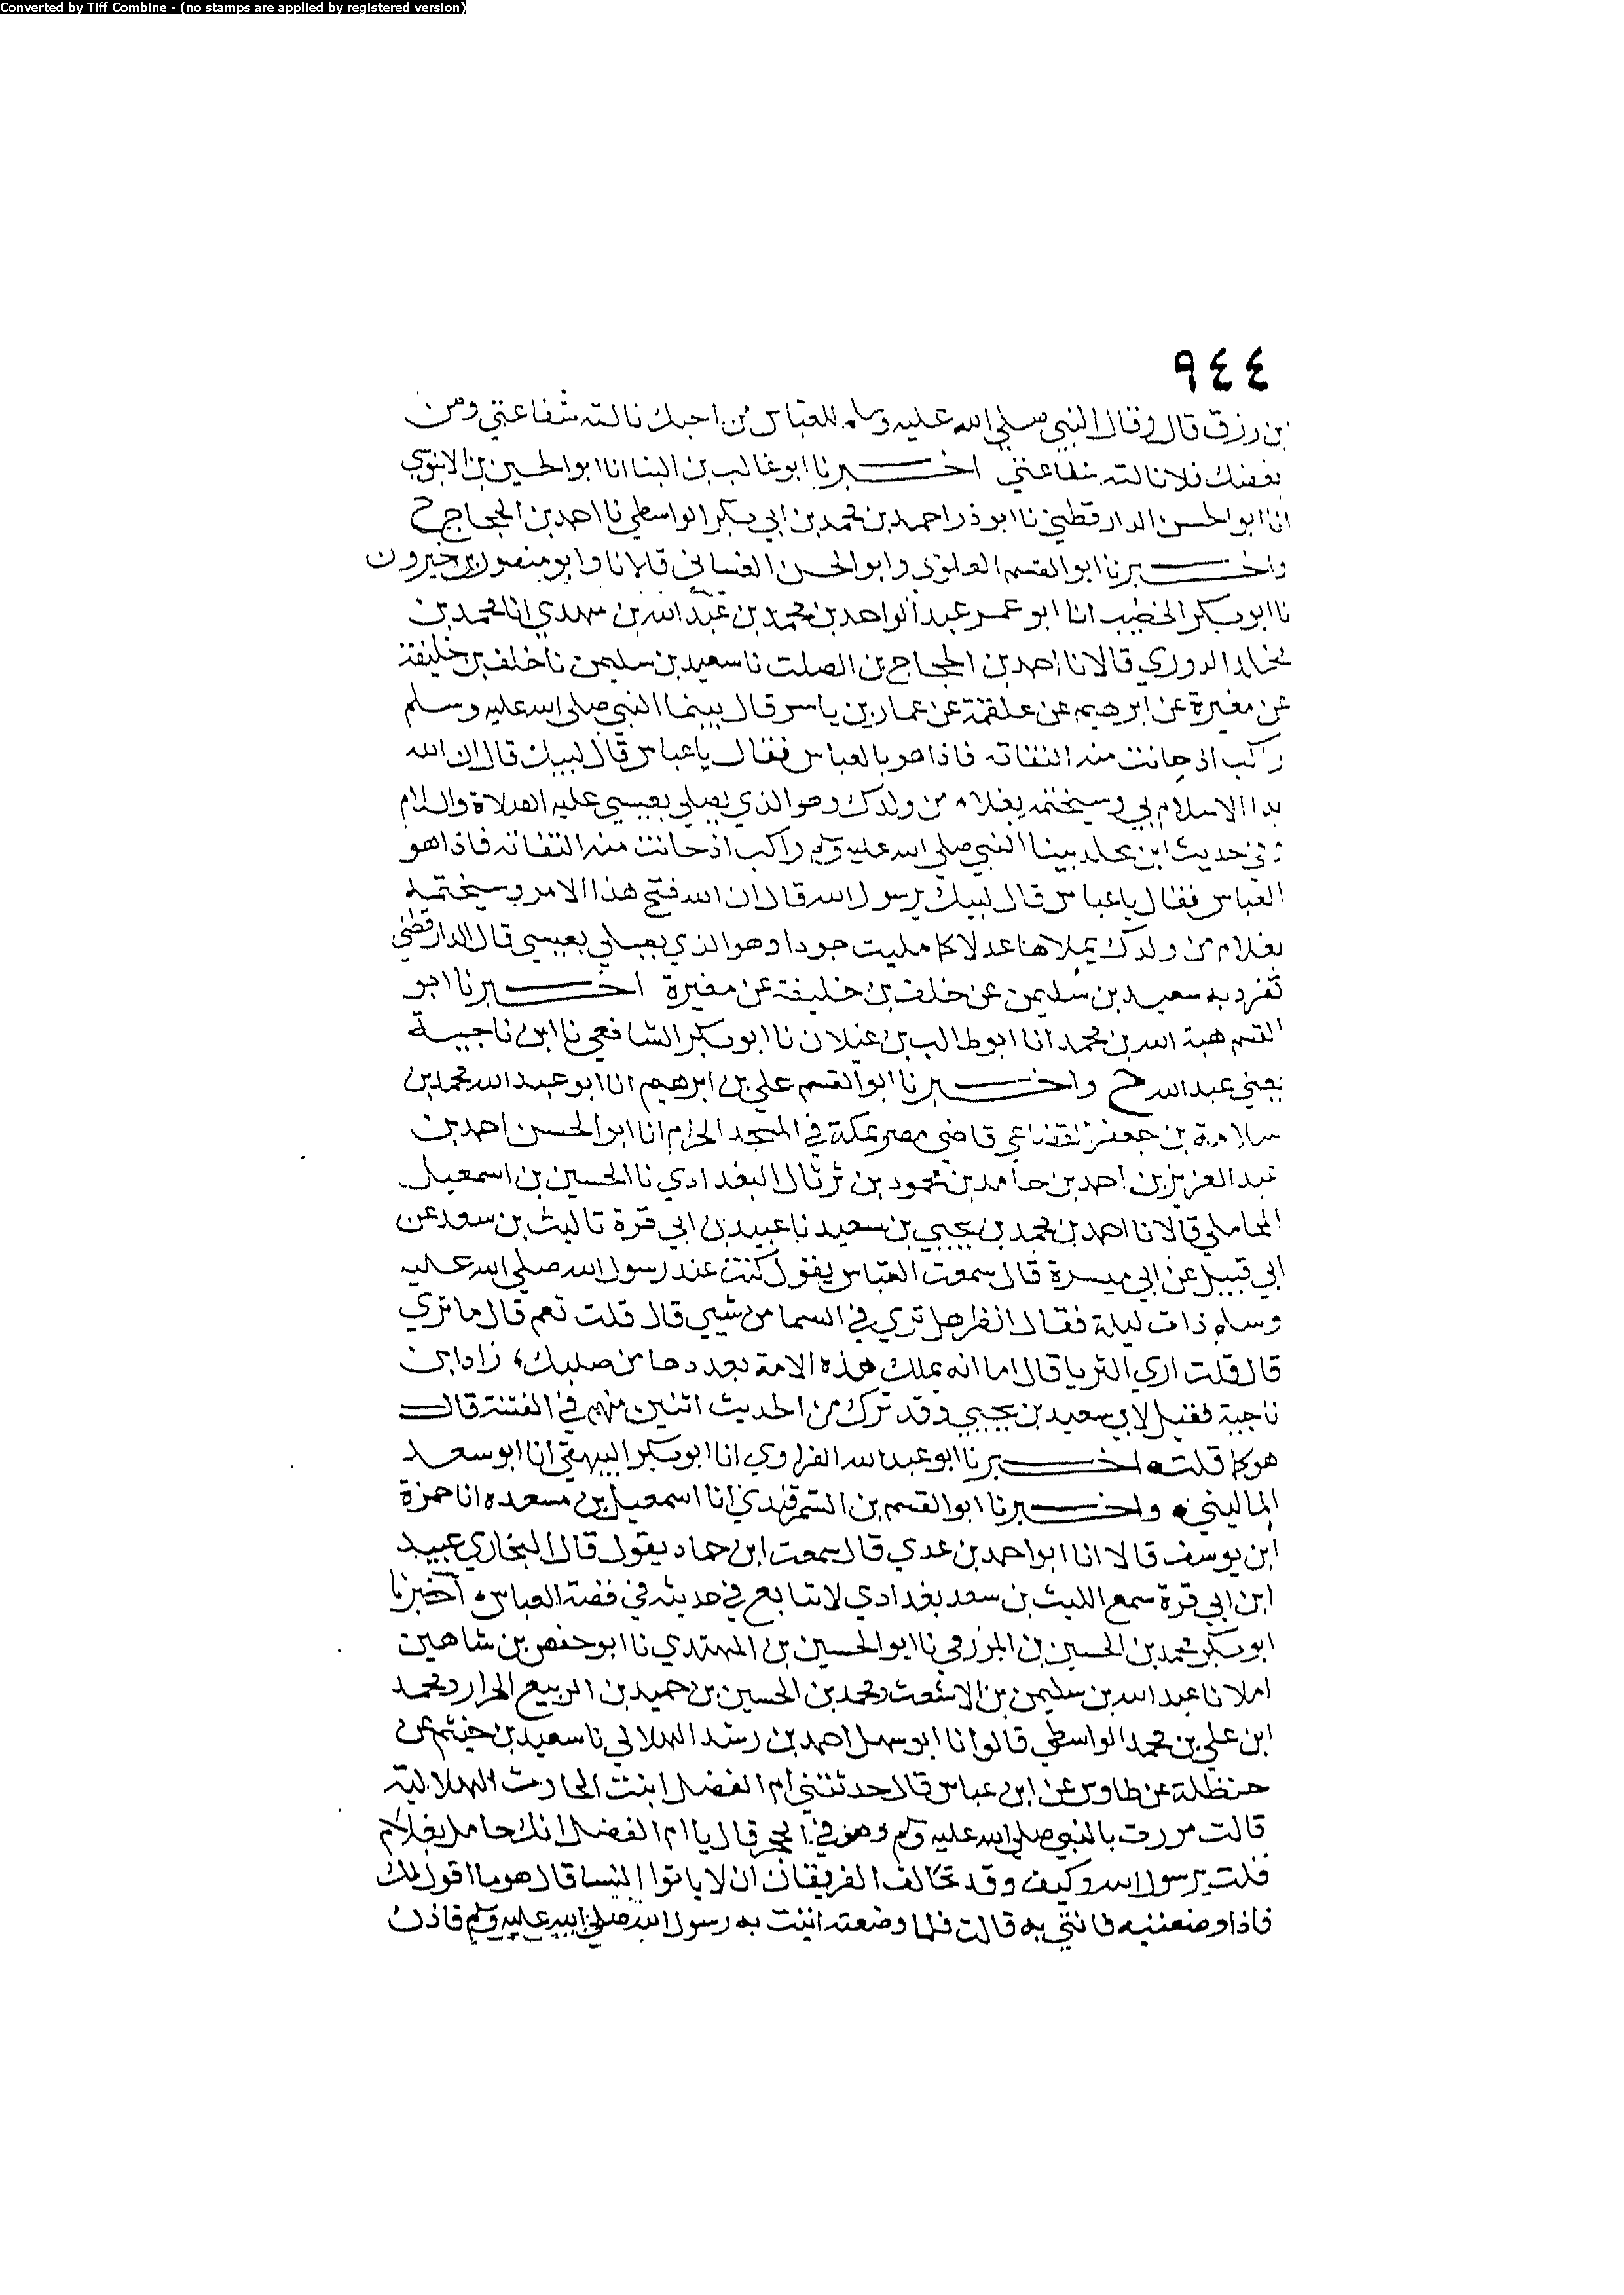 Converted by Tiff Combine - (no stamps are applied by registered version)
٩٤٤
بن رزق قال وقال النبي صلي الله عليه وسلم للعباس من احبك نالته شفاعتي ومن
بغضك فلا نالته شفاعتي اخبرنا ابو غالب بن البنا انا ابو الحسين بن الابنوسي
انا ابو الحسن الدارقطني نا ابو ذر احمد بن محمد بن ابي بكر الواسطي نا احمد بن الحجاج ح
واخبرنا ابو القسم العلوي وابو الحسن الغساني قالا نا وابو منصور بن خيرون
نا ابو بكر الخطيب انا ابو عمر عبد الواحد بن محمد بن عبد الله بن مهدي انا محمد بن
مخلد الدوري قالا نا احمد بن الحجاج بن الصلت نا سعيد بن سليمن نا خلف بن خليفة
عن مغيرة عن ابرهيم عن علقمة عن عمار بن ياسر قال بينما النبي صلي الله عليه وسلم
راكب اذ حانت منه التفاتة فاذا هو بالعباس فقال يا عباس قال لبيك قال ان الله
بدا الاسلام بي وسيختمه بغلام من ولدك وهو الذي يصلي بعيسي عليه الصلاة والسلام
وفي حديث ابن مخلد بينا النبي صلي الله عليه وسلم راكب اذ حانت منه التفاتة فاذا هو
العباس فقال يا عباس قال لبيك يرسول الله قال ان الله فتح هذا الامر وسيختمه
بغلام من ولدك يملاها عدلا كما مليت جورا وهو الذي يصلي بعيسي قال الدارقطني
تفرد به سعيد بن سليمن عن خلف بن خليفة عن مغيرة اخبرنا ابو
القسم هبة الله بن محمد انا ابو طالب بن غيلان نا ابو بكر الشافعي نا ابن ناجية
يعني عبد الله ح واخبرنا ابو القسم علي بن ابرهيم انا ابو عبد الله محمد بن
سلامة بن جعفر القضاعي قاضي مصر بمكة في المسجد الحرام انا ابو الحسن احمد بن
عبد العزيز بن احمد بن حامد بن محمود بن ثرثال البغدادي نا الحسين بن اسمعيل
المحاملي قالا نا احمد بن محمد بن يحيي بن سعيد نا عبيد بن ابي قرة نا ليث بن سعد عن
ابي قبيل عن ابي ميسرة قال سمعت العباس يقول كنت عند رسول الله صلي الله عليه
وسلم ذات ليلة فقال انظر هل تري في السما من شيي قال قلت نعم قال ما تري
قال قلت اري الثريا قال اما انه يملك هذه الامة بعددها من صلبك، زاد ابن
ناجية فقيل لابن سعيد بن يحيي وقد ترك من الحديث اثنين منهم في الفتنة قال
هو كما قلت اخبرنا ابو عبد الله الفراوي انا ابو بكر البيهقي انا ابو سعد
الماليني واخبرنا ابو القسم بن السمرقندي انا اسمعيل بن مسعده انا حمزة
ابن يوسف قالا انا ابو احمد بن عدي قال سمعت ابن حماد يقول قال البخاري عبيد
ابن ابي قرة سمع الليث بن سعد بغدادي لا يتابع في حديثه في قصة العباس اخبرنا
ابو بكر محمد بن الحسين بن المزرفي نا ابو الحسين بن المهتدي نا ابو حفص بن شاهين
املا نا عبد الله بن سليمن بن الاشعث ومحمد بن الحسين بن حميد بن الربيع الخزاز ومحمد
ابن علي بن محمد الواسطي قالوا نا ابو سهل احمد بن رشد الهلالي نا سعيد بن خيثم عن
حنظلة عن طاوس عن ابن عباس قال حدثتني ام الفضل ابنت الحارث الهلالية
قالت مررت بالنبي صلي الله عليه وسلم وهو في الحجر قال يا ام الفضل انك حامل بغلام
قلت يرسول الله وكيف وقد تحالف الفريقان ان لا ياتوا النسا قال هو ما اقول لك
فاذا وضعتيه فاتني به قالت فلما وضعته اتيت به رسول الله صلي الله عليه وسلم فاذن